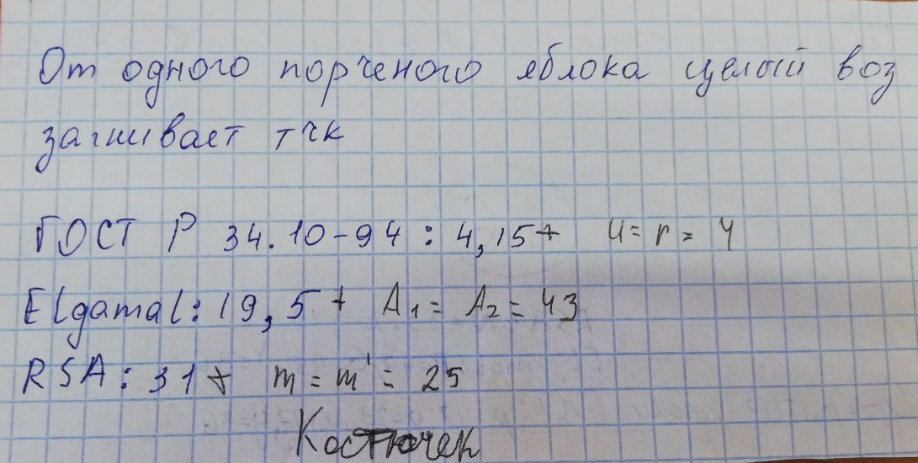 От одного порченого яблока целый воз
загнивает тчк
ГОСТ Р 34.10-94 : 4,15+ u = r = 4
Elgamal: 19,5 + A1 = A2 = 43
RSA : 31 + m = m' = 25